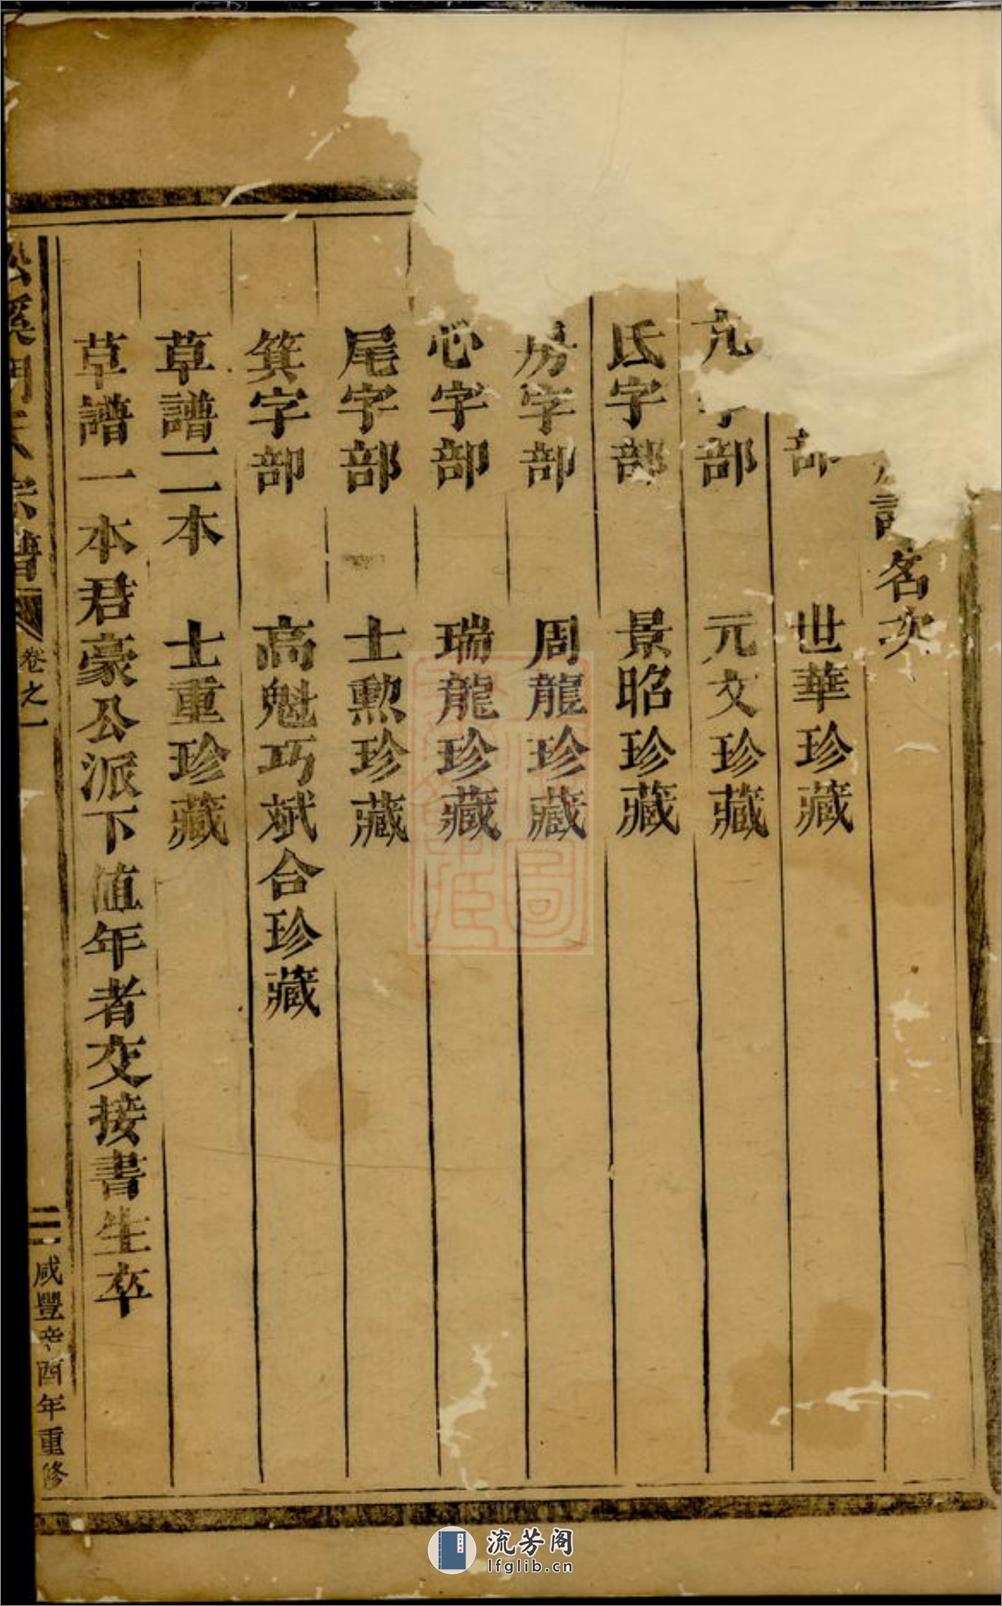 譜名次
部 世華珍藏
亢字部 元文珍藏
氐字部 景昭珍藏
房字部 周龍珍藏
心字部 瑞龍珍藏
尾字部 士勲珍藏
箕字部 高魁巧斌合珍藏
草譜二本 士重珍藏
草譜一本君豪公派下值年者交接書生卒
宗譜 卷之一 二 咸豐辛酉年重修
流芳阁
lfglib.cn